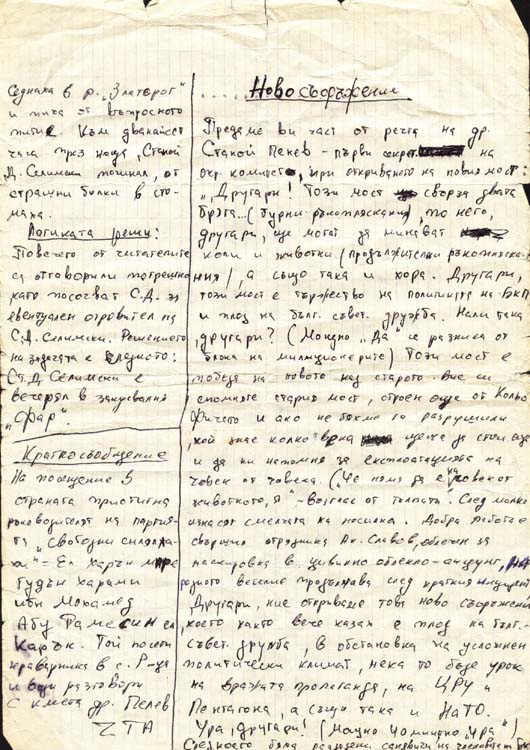 седнала в р. „Златорог“
и пила от въпросното
питие. Към дванайсет
часа през нощта, Станой
Д. Селимски починал, от
страшни болки в сто-
маха.
Логиката реши:
Повечето от читателите
са отговорили погрешно
като посочват С.Д. за
евентуален отровител на
С.Д. Селимски. Решението
на задачата е следното:
Ст. Д. Селимски е
вечерял в закусвалня
„Фар“.
Кратко съобщение
На посещение в
страната пристигна
ръководителят на партия-
та „Свободни
– Ел Харън
Гудън Харами
ибн Мохамед
Абу Рамесин ел
Карък. Той посети
краварника в с.
и води разговори
с кмета др. Пелев
ЧТА
..... Ново съоръжение
Предаме ви част от речта на др.
Станой Пенев – първи секрет. на
окр. комитет, при откриването на новия мост:
„Другари! Този мост свързва двата
бряга... (бурни ръкопляскания), по него,
другари, ще могат да минават
коли и животни (продължителни ръкопляска-
ния), а също така и хора. Другари,
този мост е тържество на политиката на БКП
и плод на бълг. съвет. дружба. Нали така
другари? (Мощно „Да“ се разнися от
блока на милиционерите) Този мост е
победа на новото над старото. Вие си
спомняте стария мост, строен още от Кольо
Фичето и ако не бяхме го разрушили
кой знае колко щеше да стои още
и да ни напомня за експлоатацията на
човек от човека. (Че няма да е на човек от
животното, я“ – възглас от тълпата). След малко
изнасят смелчага на носилка. Добра работа е
свършил отрядника Ал. Славов, облечен за
маскировка в цивилно облекло – анцуг, На-
родното веселие продължава след краткия инцидент
Другари, ние откриваме това ново съоръжение
което както вече казах е плод на бълг.-
съвет. дружба, в обстановка на усложнен
политически климат, нека то бъде урок
на вражата пропаганда, на ЦРУ и
Пентагона, а също така и НАТО.
Ура, другари! (Мощно „Ура“)